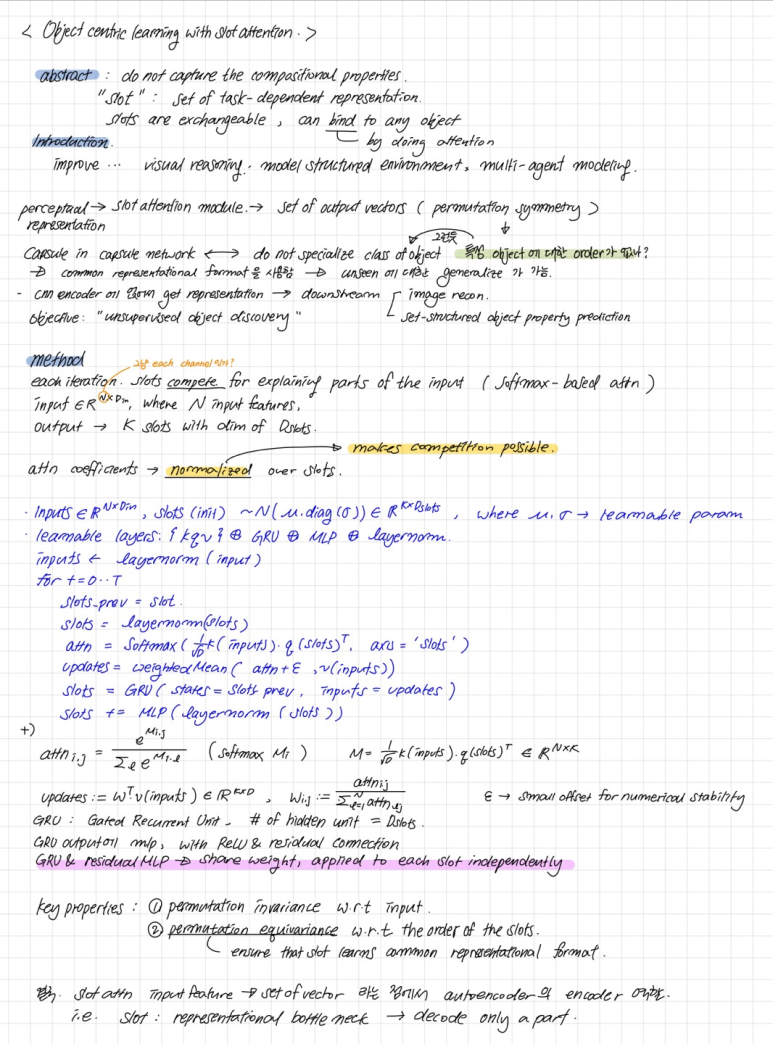 < Object centric learning with slot attention. >
abstract : do not capture the compositional properties.
"slot" : set of task-dependent representation.
slots are exchangeable, can bind to any object
by doing attention
Introduction.
improve ... visual reasoning. model structured environment, multi-agent modeling.
perceptual → slot attention module → set of output vectors ( permutation symmetry )
representation
Capsule in capsule network ↔ do not specialize class of object 특정 object에 대한 order가 없나?
→ common representational format을 사용함 → unseen에 대해 generalize 가 가능.
- cnn encoder 에 get representation → downstream image recon.
objective: "unsupervised object discovery" set-structured object property prediction
method
each channel
each iteration. slots compete for explaining parts of the input ( softmax-based attn )
input ∈ R^{N×Din}, where N input features,
output → K slots with dim of Dslots.
makes competition possible.
attn coefficients → normalized over slots.
· Inputs ∈ R^{N×Din}, slots (init) ~ N(μ, diag(σ)) ∈ R^{K×Dslots}, where μ, σ → learnable param
· learnable layers: { k q v } ⊕ GRU ⊕ MLP ⊕ layernorm.
inputs ← layernorm (input)
for t=0..T
slots_prev = slot.
slots = layernorm(slots)
attn = Softmax( 1/√D k(inputs) · q(slots)^T, axis = 'slots' )
updates = weightedMean( attn+ε, v(inputs))
slots = GRU( states = slots prev, inputs = updates )
slots += MLP( layernorm ( slots ))
+)
attn_{i,j} = e^{M_{i,j}} / Σ_l e^{M_{i,l}} ( softmax Mi ) M = 1/√D k(inputs) · q(slots)^T ∈ R^{N×K}
updates := W^T v(inputs) ∈ R^{K×D}, W_{i,j} := attn_{ij} / Σ_{l=1}^N attn_{lj} ε → small offset for numerical stability
GRU : Gated Recurrent Unit, # of hidden unit = Dslots.
GRU output에 mlp, with ReLU & residual connection
GRU & residual MLP → share weight, applied to each slot independently
key properties : ① permutation invariance w.r.t input.
② permutation equivariance w.r.t the order of the slots.
ensure that slot learns common representational format.
slot attn input feature → set of vector 라는 점에서 autoencoder의 encoder 역할.
i.e. slot : representational bottle neck → decode only a part.